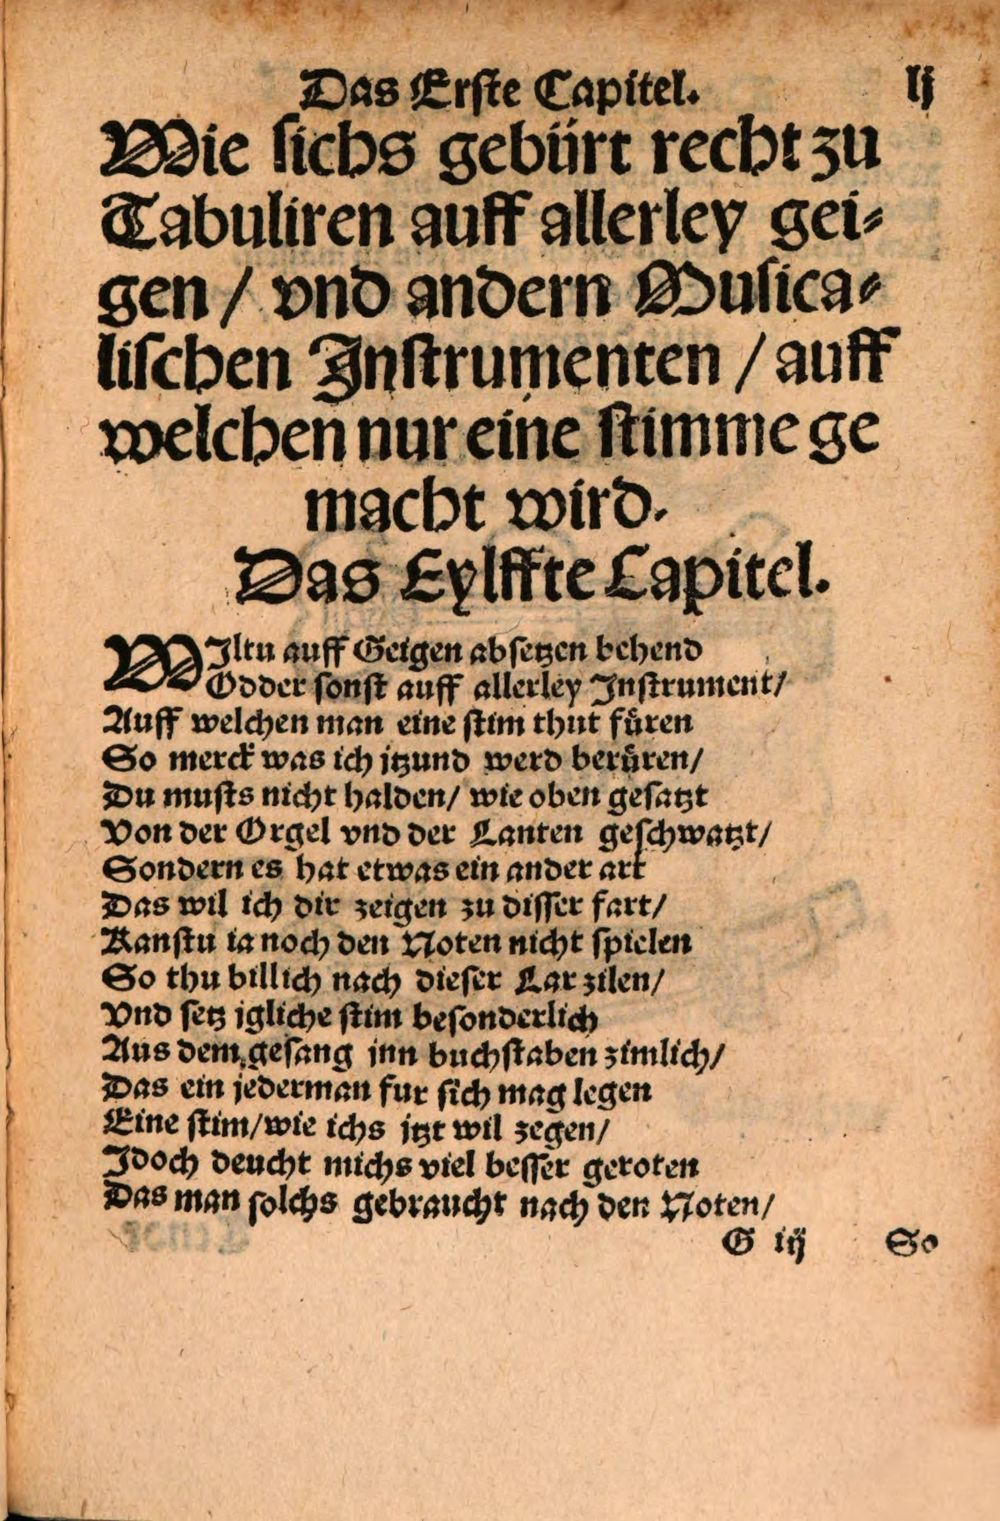 Das Erste Capitel. lj
Wie sichs gebürt recht zu
Tabuliren auff allerley gei⸗
gen / vnd andern Musica⸗
lischen Instrumenten / auff
welchen nur eine stimme ge
macht wird.
Das Eylffte Capitel.
WIltu auff Geigen absetzen behend
Odder sonst auff allerley Instrument/
Auff welchen man eine stim thut fuͤren
So merck was ich itzund werd beruͤren/
Du musts nicht halden/ wie oben gesatzt
Von der Orgel vnd der Lauten geschwatzt/
Sondern es hat etwas ein ander art
Das wil ich dir zeigen zu disser fart/
Kanstu ia noch den Noten nicht spielen
So thu billich nach dieser Lar zilen/
Vnd setz igliche stim besonderlich
Aus dem gesang inn buchstaben zimlich/
Das ein jederman fur sich mag legen
Eine stim/wie ichs itzt wil zegen/
Idoch deucht michs viel besser geroten
Das man solchs gebraucht nach den Noten/
G iij So